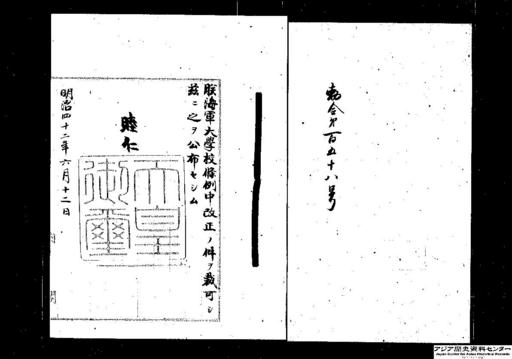 勅令第百五十八号
朕海軍大学校條例中改正ノ件ヲ裁可シ
茲ニ之ヲ公布セシム
睦仁
天皇
御璽
明治四十二年六月十二日
アジア歴史資料センター
Japan Center for Asian Historical Records